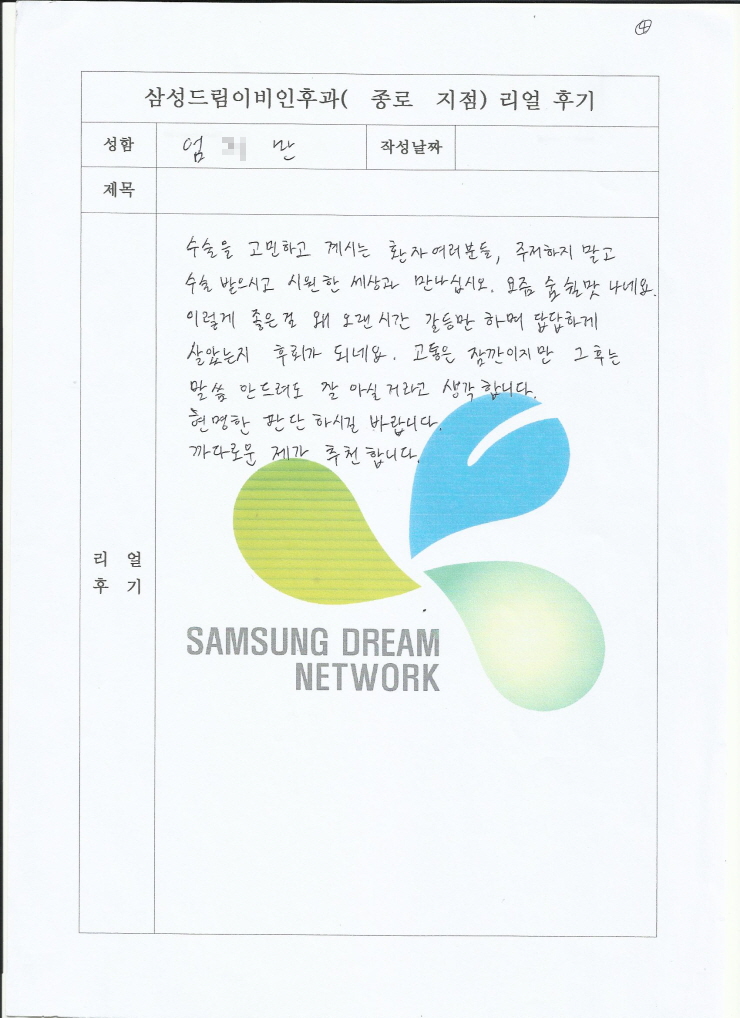 ④
삼성드림이비인후과( 종로 지점) 리얼 후기
성함 엄 란 작성날짜
제목
수술을 고민하고 계시는 환자 여러분들, 주저하지 말고
수술 받으시고 시원한 세상과 만나십시오. 요즘 숨 쉴맛 나네요.
이렇게 좋은걸 왜 오랜시간 갈등만 하며 답답하게
살았는지 후회가 되네요. 고통은 잠깐이지만 그후는
말씀 안드려도 잘 아실거라고 생각합니다.
현명한 판단 하시길 바랍니다.
까다로운 제가 추천합니다.
리얼
후기
SAMSUNG DREAM
NETWORK